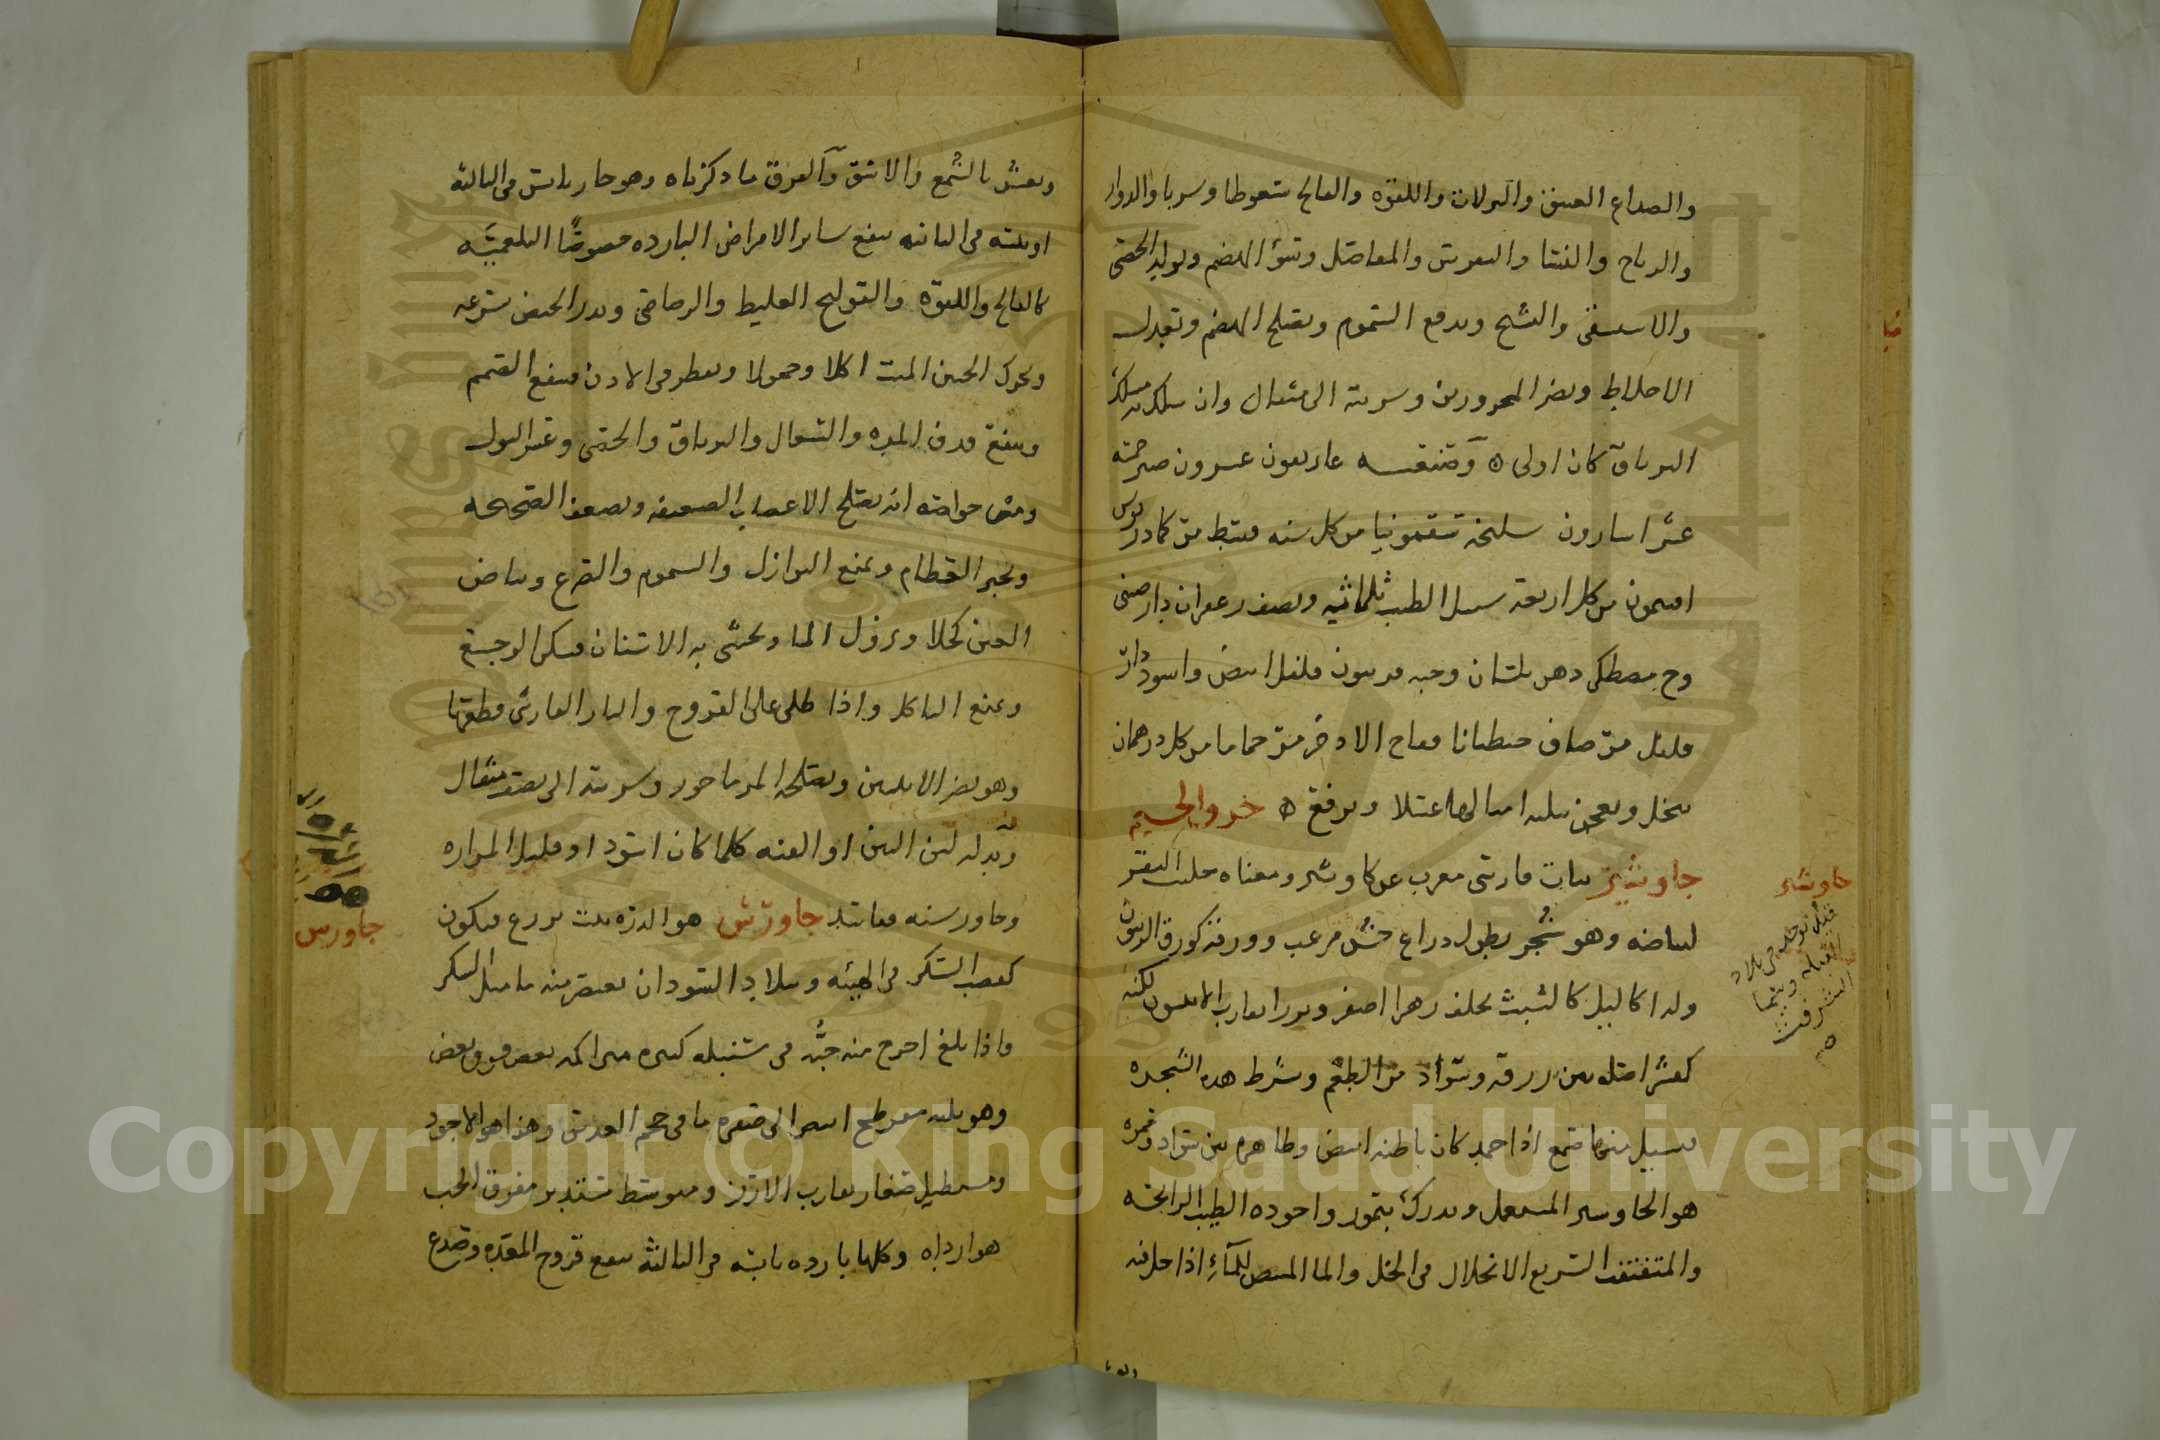 والصداع العتيق والنزلات واللقوة والفالج سعوطا وشربا والدوار
والرياح والغشا والنقرس والمفاصل وسؤ الهضم وتوليد الحصى
والاستسقى والتشنج ويدفع السموم ويصلح الهضم وتعديل
الاخلاط ويضر المحرورين وشربته الى مثقال وان سلك به مسلك
الترياق كان اولى ٥ وصنعته غاريقون عشرون صبر خمسة
عشر اسارون سليخة سقمونيا من كل ستة قسط مر كمادريوس
افتيمون من كل اربعة سنبل الطيب ثلاثة ونصف زعفران دار صيني
وج مصطكى دهن بلسان وحبه فربيون فلفل ابيض واسود دار
فلفل مر صاف جنطيانا فقاح الاذخر مر حماما من كل درهمان
ينخل ويعجن بثلاثة امثالها عسلا ويرفع ٥ حرف الجيم
جاوشير نبات فارسى معرب عن كاوشير ومعناه حليب البقر
لبياضه وهو شجر يطول ذراع خشن مزغب وورقه كورق الزيتون
وله اكاليل كالشبث يخلف زهرا اصفر وبزرا يقارب الانيسون لكنه
كقشر اصله بين زرقه وسواد مر الطعم وشرط هذه الشجره
فيسيل منها صمغ اذا جمد كان باطنه ابيض وظاهره بين سواد وحمره
هو الجاوشير المستعمل ويدرك بتموز واجوده الطيب الرائحه
والمتفتت السريع الانحلال فى الخل والما المبيض للمآء اذا حل فيه
جاوشير
قيل توجد فى بلاد
ويغش بالشمع والاشق والفرق ما ذكرناه وهو حار يابس فى الثالثه
او يبسه فى الثانيه ينفع ساير الامراض البارده خصوصًا البلغميه
كالفالج واللقوه والقولنج الغليظ والرياحى ويدر الحيض بسرعه
ويخرج الجنين الميت اكلا وحمولا ويقطر فى الاذن فينفع الصمم
وينفع قذف المده والسعال واليرقان والحصى وعسر البول
ومن خواصه انه يصلح الاعصاب الضعيفه ويضعف الصحيحه
ويجبر العظام ويمنع النوازل والسموم والصرع وبياض
العين كحلا ونزول الما ويحشى به الاسنان فيسكن الوجع
ويمنع التاكل واذا طلى على القروح والنار الفارسى قطعها
وهو يضر الانثيين ويصلحه المرماحوز وشربته الى نصف مثقال
وبدله لبن التين او القنه كلما كان اسود او قليل المراره
وجاور سنه ففاسد جاورس هو الذره نبت يزرع فيكون
كقصب السكر فى الهيئه وببلاد السودان يعتصر منه ما مثل السكر
واذا بلغ اخرج منه حبه فى سنبله كبيره متراكمه بعض فوق بعض
وهو ثلثه مفرطح ابيض الى صفره ما فى حجم العدس وهذا هو الاجود
ومستطيل صغار يقارب الارز ومتوسط مستدير مفرق الحب
هو ارداه وكلها بارده يابسه فى الثالثه ينفع قروح المعده وصدع
جاورس